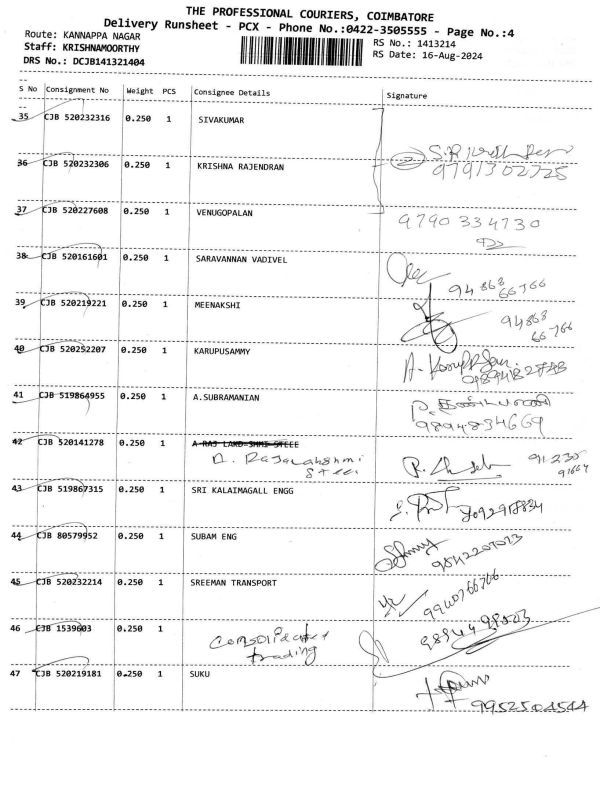 THE PROFESSIONAL COURIERS, COIMBATORE
Delivery Runsheet - PCX - Phone No.:0422-3505555 - Page No.:4
Route: KANNAPPA NAGAR
Staff: KRISHNAMOORTHY
DRS No.: DCJB141321404
RS No.: 1413214
RS Date: 16-Aug-2024
S No Consignment No Weight PCS Consignee Details Signature
35 CJB 520232316 0.250 1 SIVAKUMAR
36 CJB 520232306 0.250 1 KRISHNA RAJENDRAN
9791302725
37 CJB 520227608 0.250 1 VENUGOPALAN 9790334730
38 CJB 520161601 0.250 1 SARAVANNAN VADIVEL
94868
66766
39 CJB 520219221 0.250 1 MEENAKSHI 94868
66766
40 CJB 520252207 0.250 1 KARUPUSAMMY
41 CJB 519864955 0.250 1 A.SUBRAMANIAN
9894834669
42 CJB 520141278 0.250 1 A RAJ LAKD SHMI STEEE
A. Rajalakshmi
Steel
43 CJB 519867315 0.250 1 SRI KALAIMAGALL ENGG
44 CJB 80579952 0.250 1 SUBAM ENG
45 CJB 520232214 0.250 1 SREEMAN TRANSPORT
46 CJB 1539603 0.250 1
trading
47 CJB 520219181 0.250 1 SUKU
9952504544